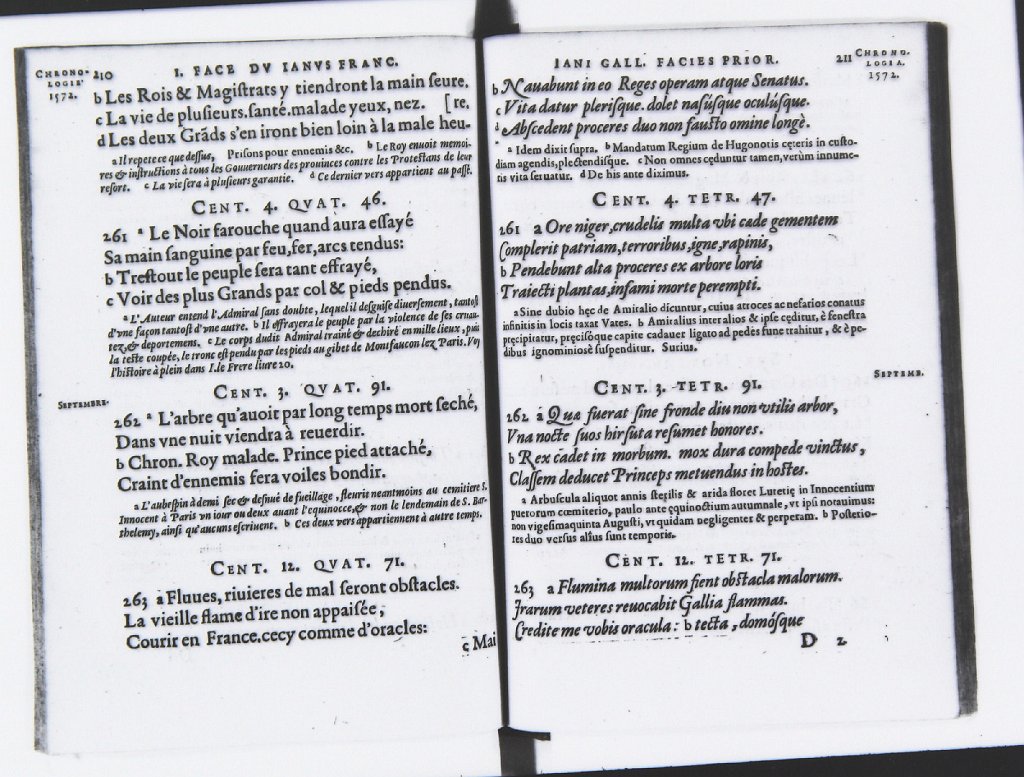 CHRONO-
LOGIE
1572.
210
I. FACE DV IANVS FRANC.
b Les Rois & Magiſtrats y tiendront la main ſeure.
c La vie de pluſieurs.ſanté.malade yeux, nez. [re.
d Les deux Grãds s'en iront bien loin à la male heu-
a Il repete ce que deſſus, Priſons pour ennemis &c. b Le Roy enuoit memoi-
res & inſtructions à tous les Gouuerneurs des prouinces contre les Proteſtans de leur
reſort. c La vie ſera à pluſieurs garantie. d Ce dernier vers appartient au paſſé.
CENT. 4. QVAT. 46.
261 a Le Noir farouche quand aura eſſayé
Sa main ſanguine par feu,fer,arcs tendus:
b Treſtout le peuple ſera tant effrayé,
c Voir des plus Grands par col & pieds pendus.
a L'Auteur entend l'Admiral ſans doute, lequel il deſguiſe diuerſement, tantoſt
d'vne façon tantoſt d'vne autre. b Il effrayera le peuple par la violence de ſes cruau-
tez,& deportemens. c Le corps dudit Admiral trainé & dechiré en mille lieux, puis
la teſte coupée, le tronc eſt pendu par les pieds au gibet de Montfaucon lez Paris. Voy
l'hiſtoire à plein dans I.le Frere liure 20.
CENT. 3. QVAT. 91.
SEPTEMBRE.
262 a L'arbre qu'auoit par long temps mort ſeché,
Dans vne nuit viendra à reuerdir.
b Chron. Roy malade. Prince pied attaché,
Craint d'ennemis fera voiles bondir.
a L'aubeſpin à demi ſec & deſnué de fueillage, fleurit neantmoins au cemitiere S.
Innocent à Paris vn iour ou deux auant l'equinocce,& non le lendemain de S. Bar-
thelemy, ainſi qu'aucuns eſcriuent. b Ces deux vers appartiennent à autre temps.
CENT. 12. QVAT. 71.
263 a Fluues, riuieres de mal ſeront obſtacles.
La vieille flame d'ire non appaiſée,
Courir en France.cecy comme d'oracles:
c Mai
IANI GALL. FACIES PRIOR.
211
CHRONO-
LOGIA.
1572.
b Nauabunt in eo Reges operam atque Senatus.
c Vita datur pleriſque. dolet naſúſque oculúſque.
d Abſcedent proceres duo non fauſto omine longè.
a Idem dixit ſupra. b Mandatum Regium de Hugonotis cęteris in cuſto-
diam agendis,plectendiſque. c Non omnes cęduntur tamen,verùm innume-
tis vita ſeruatur. d De his ante diximus.
CENT. 4. TETR. 47.
261 a Ore niger,crudelis multa vbi cæde gementem
Complerit patriam,terroribus,igne,rapinis,
b Pendebunt alta proceres ex arbore loris
Traiecti plantas,infami morte perempti.
a Sine dubio hęc de Amiralio dicuntur, cuius atroces ac nefarios conatus
infinitis in locis taxat Vates. b Amiralius inter alios & ipſe cęditur, è feneſtra
pręcipitatur, pręciſoque capite cadauer ligato ad pedes fune trahitur, & è pe-
dibus ignominiosè ſuſpenditur. Surius.
CENT. 3. TETR. 91.
SEPTEMB.
262 a Quæ fuerat ſine fronde diu non vtilis arbor,
Vna nocte ſuos hirſuta reſumet honores.
b Rex cadet in morbum. mox dura compede vinctus,
Claſſem deducet Princeps metuendus in hoſtes.
a Arbuſcula aliquot annis ſterilis & arida floret Lutetię in Innocentium
puerorum cœmiterio, paulo ante ęquinoctium autumnale, vt ipſi notauimus:
non vigeſimaquinta Auguſti, vt quidam negligenter & perperam. b Poſterio-
tes duo verſus alius ſunt temporis.
CENT. 12. TETR. 71.
263 a Flumina multorum fient obſtacla malorum.
Irarum veteres reuocabit Gallia flammas.
Credite me vobis oracula: b tecta, domóſque
D 2